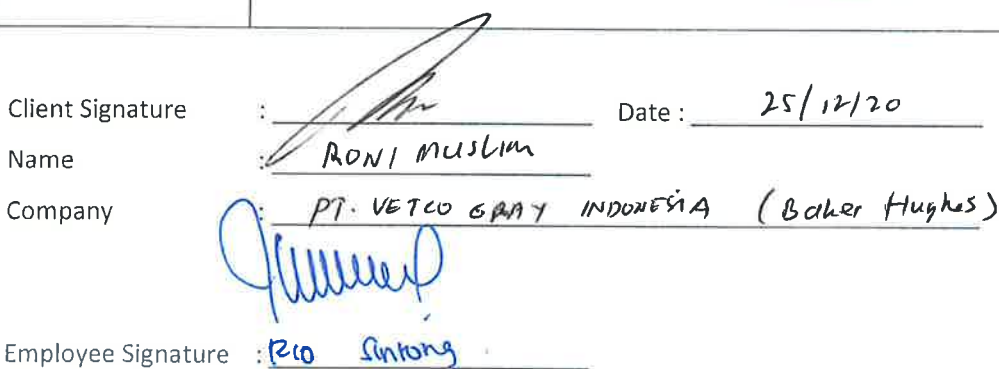 Client Signature : Date : 25/12/20
Name : RONI MUSLIM
Company : PT. VETCO GRAY INDONESIA (Baker Hughes)
Employee Signature : Rio Sintong